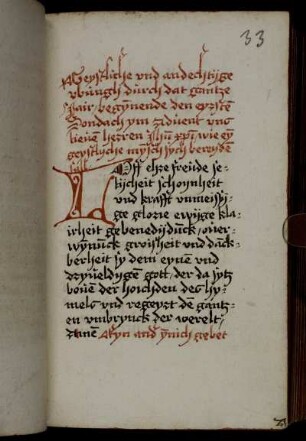 33
Geystliche vnd andechtijge
vbungh durch dat gantze
Jair / begynnende den eyrstē
Sondach ym aduent vns
lieuen herren Jhū xp̄i, wie ey
geystlyche mysch sych bereyden
sall
Loff ehre freude se-
lijcheit schoynheit
vnd krafft vnmessy-
ge glorie ewyge kla-
irheit gebenedijduck, ouer-
wynnuck groisheit vnd danck-
berheit sy dem eynen vnd
dryueldijgen gott, der da sytz
bouen der hochden des hy-
mels vnd regeyrt dē gantz-
en vmbrynck der werelt,
Amen Eyn and ynnich gebet